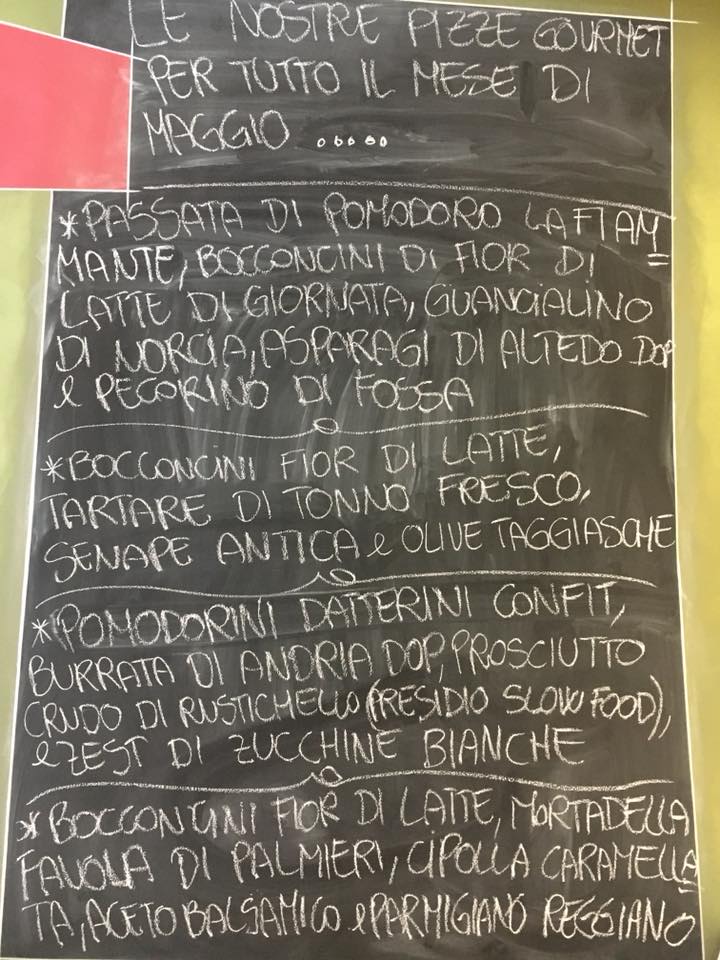 LE NOSTRE PIZZE GOURMET
PER TUTTO IL MESE DI
MAGGIO .....
*PASSATA DI POMODORO LA FIAM=
MANTE, BOCCONCINI DI FIOR DI
LATTE DI GIORNATA, GUANCIALINO
DI NORCIA, ASPARAGI DI ALTEDO DOP
e PECORINO DI FOSSA
*BOCCONCINI FIOR DI LATTE,
TARTARE DI TONNO FRESCO,
SENAPE ANTICA e OLIVE TAGGIASCHE
*POMODORINI DATTERINI CONFIT,
BURRATA DI ANDRIA DOP, PROSCIUTTO
CRUDO DI RUSTICHELLO (PRESIDIO SLOW FOOD),
e ZEST DI ZUCCHINE BIANCHE
*BOCCONCINI FIOR DI LATTE, MORTADELLA
FAVOLA DI PALMIERI, CIPOLLA CARAMELLA=
TA, ACETO BALSAMICO e PARMIGIANO REGGIANO